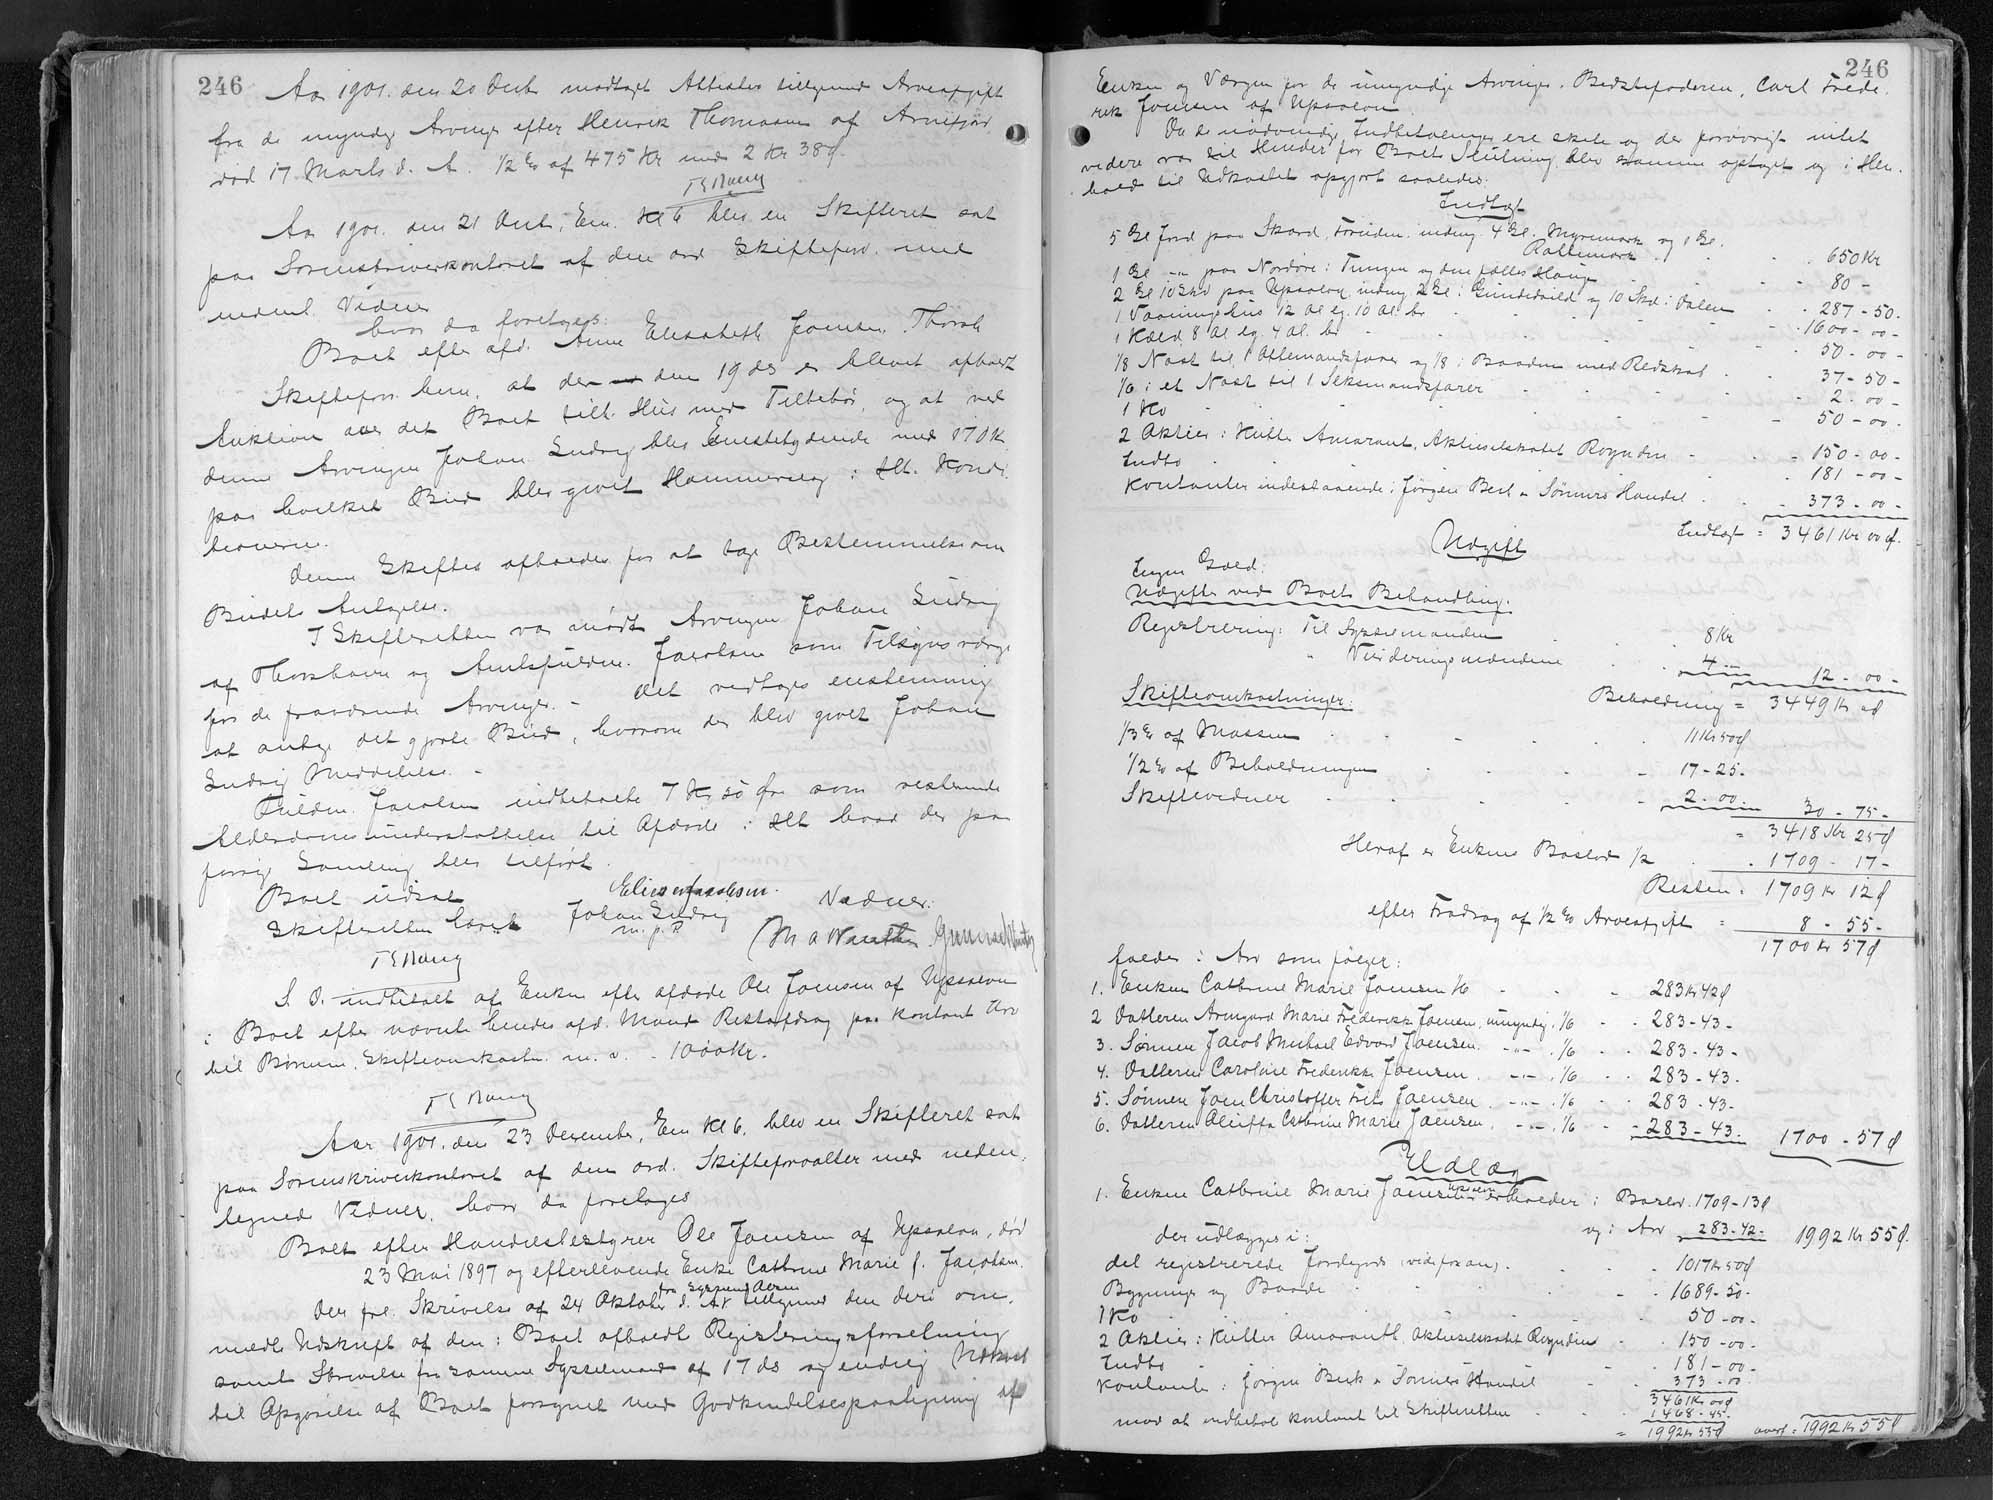 246
Aar 1901. den 20 Decbr modtaget Attester tilligemed Arveafgift
fra de myndige Arvinger efter Henrik Thomasen af Arnefjord
død 17 Marts d. A. 1/2 % af 475 Kr med 2 Kr 38 Ø.
Aar 1901. den 21 Decbr, Em. Kl 6 blev en Skifteret sat
paa Sorenskriverkontoret af den ord Skifteforv. med
nedenst. Vidner
hvor da foretoges:
Boet efter afd. Anne Elisabeth Joensen. Thorsh
Skifteforv. bem. at der den 19 ds er blevet afholdt
Auktion over det Boet tilh. Hus med Tilbehør, og at ved
denne Arvingen Johan Sudrig blev Enestebydende med 170 Kr
paa hvilket Bud blev givet Hammerslag i Hht. Kondi
tionerne.
Denne Skiftes afholdes for at tage Bestemmelse om
Budets Antagelse.
I Skifteretten var mødt Arvingen Johan Sudrig
af Thorshavn og Amtsfuldm. Jacobsen som Tilsynsværge
for de fraværende Arvinger. - Det vedtoges enstemmig
at antage det gjorte Bud, hvorom der blev givet Johan
Sudrig Meddelelse. -
Fuldm. Jacobsen indbetalte 7 Kr 50 Øre som resterende
Alderdomsunderstøttelse til Afdøde i Hht hvad der paa
forrige Samling blev tilført.
Boet udsat
Skifteretten hævet
Johan Sudrig
m. f. P.
Vidner:
S. D. indbetalt af Enken efter afdøde Ole Joensen af Upsalon
i Boet efter nævnte hendes afd. Mand Restafdrag paa kontant Arv
til Børnene, Skifteomkostn. m. v. - 1000 Kr.
Aar 1901. den 23 December, Em Kl 6, blev en Skifteret sat
paa Sorenskriverkontoret af den ord. Skifteforvalter med neden
tegnede Vidner, hvor da foretoges
Boet efter Handelsbestyrer Ole Joensen af Upsalon, død
23 Mai 1897 og efterlevende Enke Cathrine Marie f. Jacobsen.
Der frl. Skrivelse af 24 Oktober d. A. fra Sysselmand tilligemed den deri om
meldte Udskrift af den i Boet afholdt Registeringsforretning
samt Skrivelse fra samme Sysselmand af 17 ds og endelig Udkast
til Opgørelse af Boet forsynet med Godkendelsespaategning af
246
Enken og Værgen for de umyndige Arvinger. Bedstefaderen, Carl Frede
rik Joensen af Upsalon
Da de nødvendige Indbetalinger ere skete og der forøvrigt intet
videre var til Hinder for Boets Slutning, blev samme optaget og i Hen
hold til Udkastet opgjort saaledes:
Indtægt
5 Gl Jord paa Skard, foruden indeng 4 Gl. Myremark og 1 Gl.
Rallemark 650 Kr
1 Gl -"- paa Nordøre: Tungen og den fælles Hauge 80 -
2 Gl 10 Skd paa Upsalon indeng 2 Gl i Gundedeild og 10 Skd i Dalen 287 - 50.
1 Vaaningshus 12 Al lg. 10 Al. br 1600 - 00 -
1 Kæld, 8 Al lg. 4 al. br 50 - 00 -
1/8 Nøst til 1 Ottemandsfarer og 1/8 i Baaden med Redskab 37 - 50 -
1/6 i et Nøst til 1 Seksmandsfarer 2 - 00 -
1 Ko 50 - 00.
2 Aktier i Kutter Amarant, Aktieselskabet Royndin 150 - 00 -
Indbo 181 - 00 -
Kontanter indestaaende i Jørgen Bech & Sønners Handel 373 - 00 -
Indtægt = 3461 Kr 00 Ø.
Udgift
Ingen Gæld.
Udgifter ved Boets Behandling:
Registrering: Til Sysselmanden 8 Kr
" Vurderingsmændene 4 - 12 - 00 -
Beholdning = 3449 Kr 00 Ø
Skifteomkostninger:
1/3 % af Massen 11 Kr 50 Ø
1/2 % af Beholdningen 17 - 25 -
Skiftevidner 2 - 00 30 - 75 -
= 3418 Kr 25 Ø
Heraf er Enkens Boslod 1/2 1709 - 17 -
Resten 1709 Kr 12 Ø
efter Fradrag af 1/2 % Arveafgift = 8 - 55 -
1700 Kr 57 Ø
falder i Arv som følger:
1. Enken Cathrine Marie Joensen 1/6 283 Kr 42 Ø
2 Datteren Armgard Marie Frederikke Joensen, umyndig. 1/6 283 - 43 -
3. Sønnen Jacob Michael Edvard Joensen. -"- 1/6 283 - 43 -
4. Datteren Caroline Frederikke Joensen. -"- 1/6 283 - 43.
5. Sønnen Joen Christoffer Frits Joensen. -"- 1/6 283 - 43.
6. Datteren Cathrine Marie Joensen. -"- 1/6 283 - 43. 1700 - 57 Ø
Udlæg
1. Enken Cathrine Marie Joensen Upsalon erholder i Boslod 1709 - 13 Ø
og i Arv 283 - 42 - 1992 Kr 55 Ø.
der udlægges i:
det registrerede Jordegods (vide foran) 1017 Kr 50 Ø
Bygninger og Baade 1689 - 50 -
1 Ko 50 - 00 -
2 Aktier i Kutter Amaranth, Aktieselskabet Royndin 150 - 00 -
Indbo 181 - 00 -
Kontanter i Jørgen Bech & Sønners Handel 373 - 00
3461 Kr 00 Ø
mod at indbetale kontant til Skifteretten 1468 - 45 -
= 1992 Kr 55 Ø overf = 1992 Kr 55 Ø